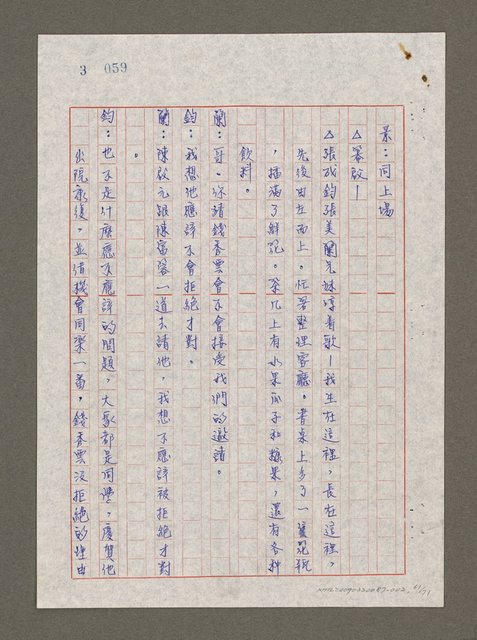 3 059
景：同上場
△幕啟—
△張成鈞張美蘭兄妹哼着歌—我生在這裡，長在這裡，
先後由左而上。忙着整理客廳。書桌上多了一盞花瓶
，插滿了鮮花。茶几上有水果瓜子和糖果，還有各種
飲料。
蘭：哥。你請錢秀雲會不會接受我們的邀請。
鈞：我想他應該不會拒絕才對。
蘭：陳啟元跟陳富容一道去請他，我想不應該被拒絕才對
。
鈞：也不是什麼應不應該的問題，大家都是同學，慶賀他
出院康復，並借機會同樂一番，錢秀雲沒拒絕的理由